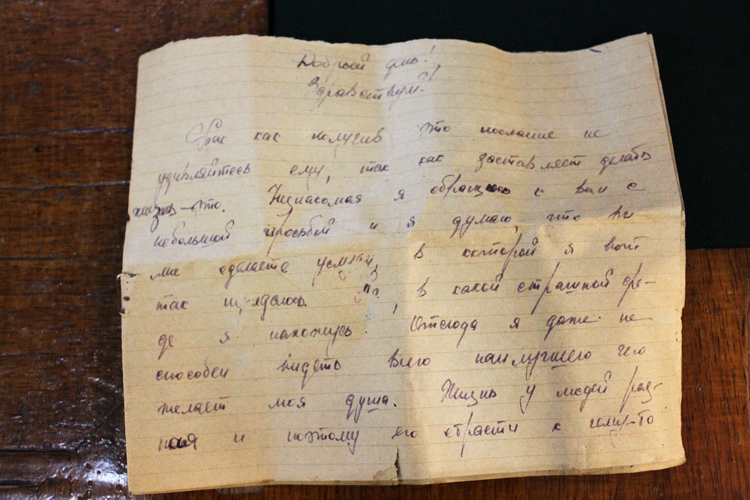 Добрый день!
Здравствуй!
Так как получив это послание не
удивляйтесь ему, так как заставляет делать
жизнь это. Незнакомая я обращаюсь с вам с
небольшой просьбой и я думаю, что вы
мне сделаете услугу, в которой я вот
так нуждаюсь. в какой страшной сре-
де я нахожусь. Отсюда я даже не
способен видеть всего наилучшего чего
желает моя душа. Жизнь у людей раз-
ная и поэтому его страсти к кому-то